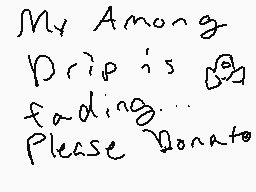 My Among
Drip is
fading...
Please Donate